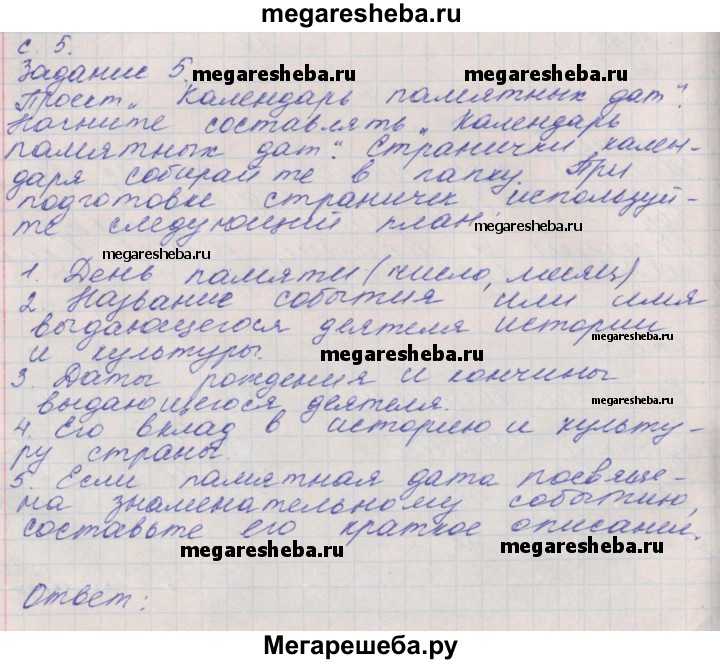 megaresheba.ru
с. 5.
Задание 5.
megaresheba.ru megaresheba.ru
Проект „Календарь памятных дат".
Начните составлять „Календарь
памятных дат". Странички кален-
даря собирайте в папку. При
подготовке страничек используй-
те следующий план:
megaresheba.ru
megaresheba.ru
1. День памяти (число, месяц)
2. Название события или имя
выдающегося деятеля истории
и культуры.
megaresheba.ru
megaresheba.ru
3. Даты рождения и кончины
выдающегося деятеля.
megaresheba.ru
4. Его вклад в историю и культу-
ру страны.
5. Если памятная дата посвяще-
на знаменательному событию,
составьте его краткое описаней.
megaresheba.ru
megaresheba.ru
Ответ:
Мегарешеба.ру